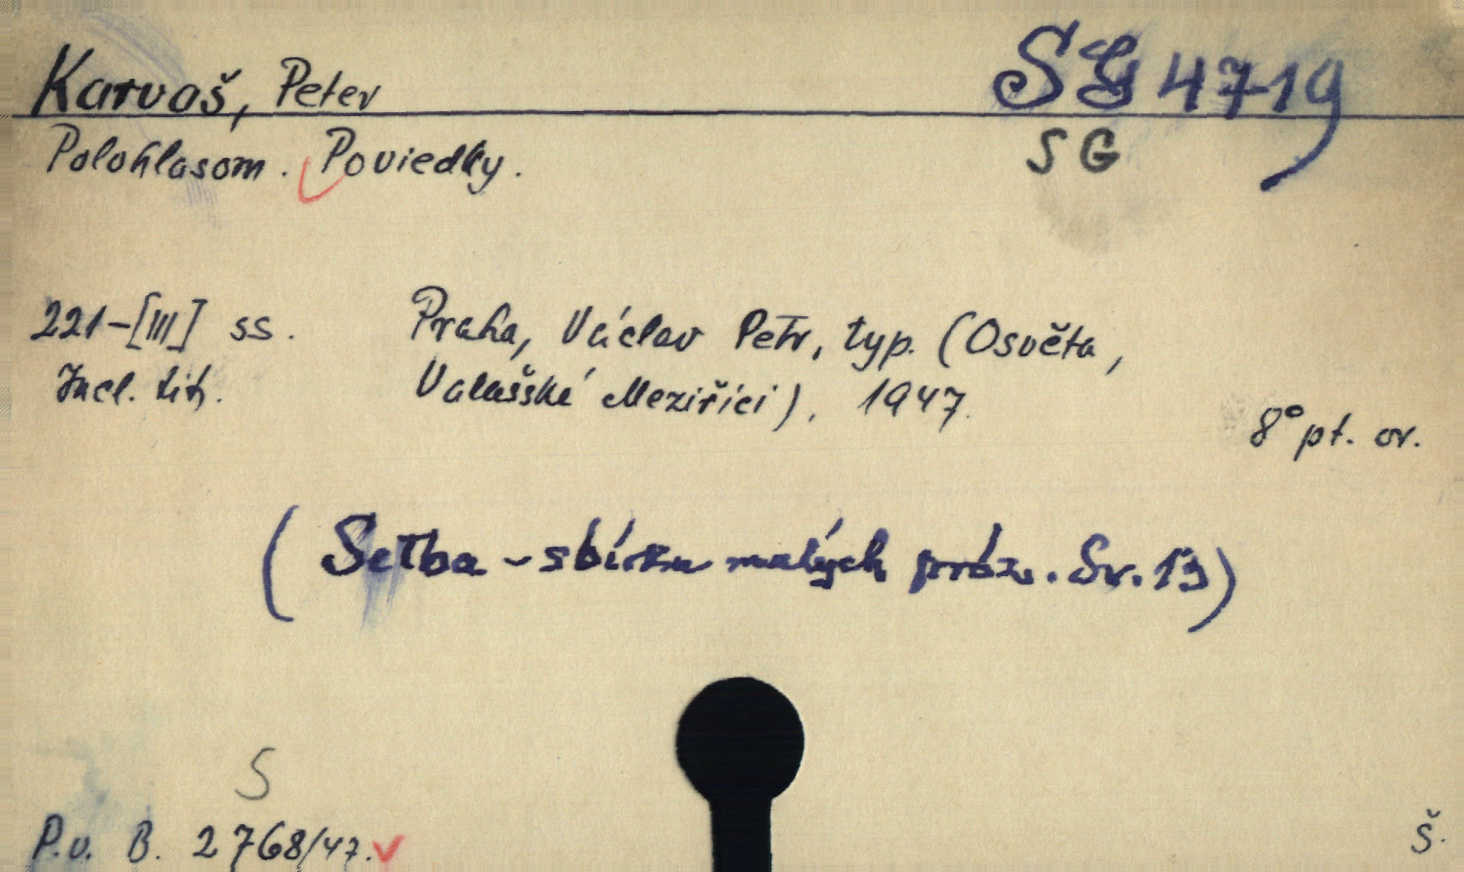 Karvaš, Peter SG 4719
Polohlasom. Poviedky. SG
221-[III] ss. Praha, Václav Petr, typ. (Osvěta,
Incl. tit. Valašské Meziříci), 1947.
8° pt. or.
(Setba - sbírka malých próz. Sv. 13)
S
P.v. B. 2768/47.
Š.